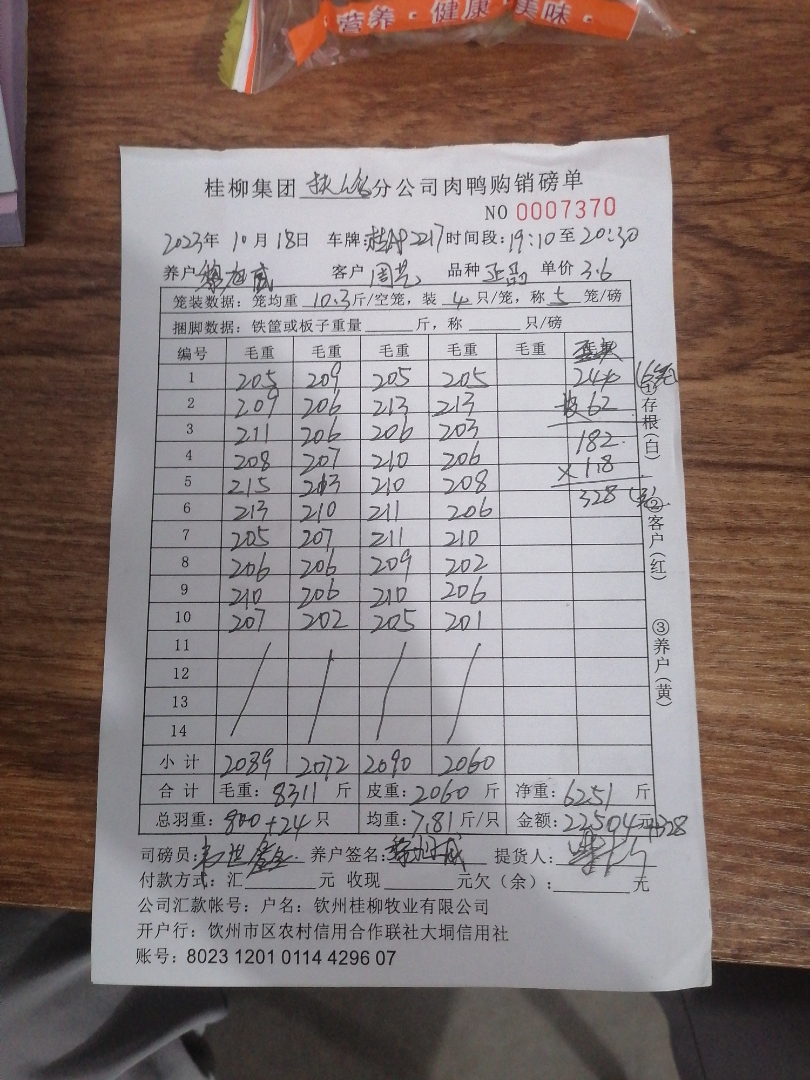 营养·健康·美味·
桂柳集团 扶绥 分公司肉鸭购销磅单
NO 0007370
2023年 10月 18日 车牌:桂AP2217 时间段:19:10至20:30
养户 威 客户 周 品种 正品 单价 3.6
笼装数据:笼均重 10.3 斤/空笼,装 4 只/笼,称 5 笼/磅
捆脚数据:铁筐或板子重量 斤,称 只/磅
编号 毛重 毛重 毛重 毛重 毛重
1 205 209 205 205 244
2 209 206 213 213 62
3 211 206 206 203 182
4 208 207 210 206 ×1.8
5 215 213 210 208 328
6 213 210 211 206
7 205 207 211 210
8 206 206 209 202
9 210 206 210 206
10 207 202 205 201
11
12
13
14
小计 2089 2072 2090 2060
合计 毛重:8311 斤 皮重:2060 斤 净重:6251 斤
总羽重:800+24 只 均重:7.81 斤/只 金额:22504 元+328
司磅员: 养户签名: 提货人:
付款方式:汇 元 收现 元欠(余): 元
公司汇款帐号:户名:钦州桂柳牧业有限公司
开户行:钦州市区农村信用合作联社大垌信用社
账号:8023 1201 0114 4296 07
①存根(白)
②客户(红)
③养户(黄)